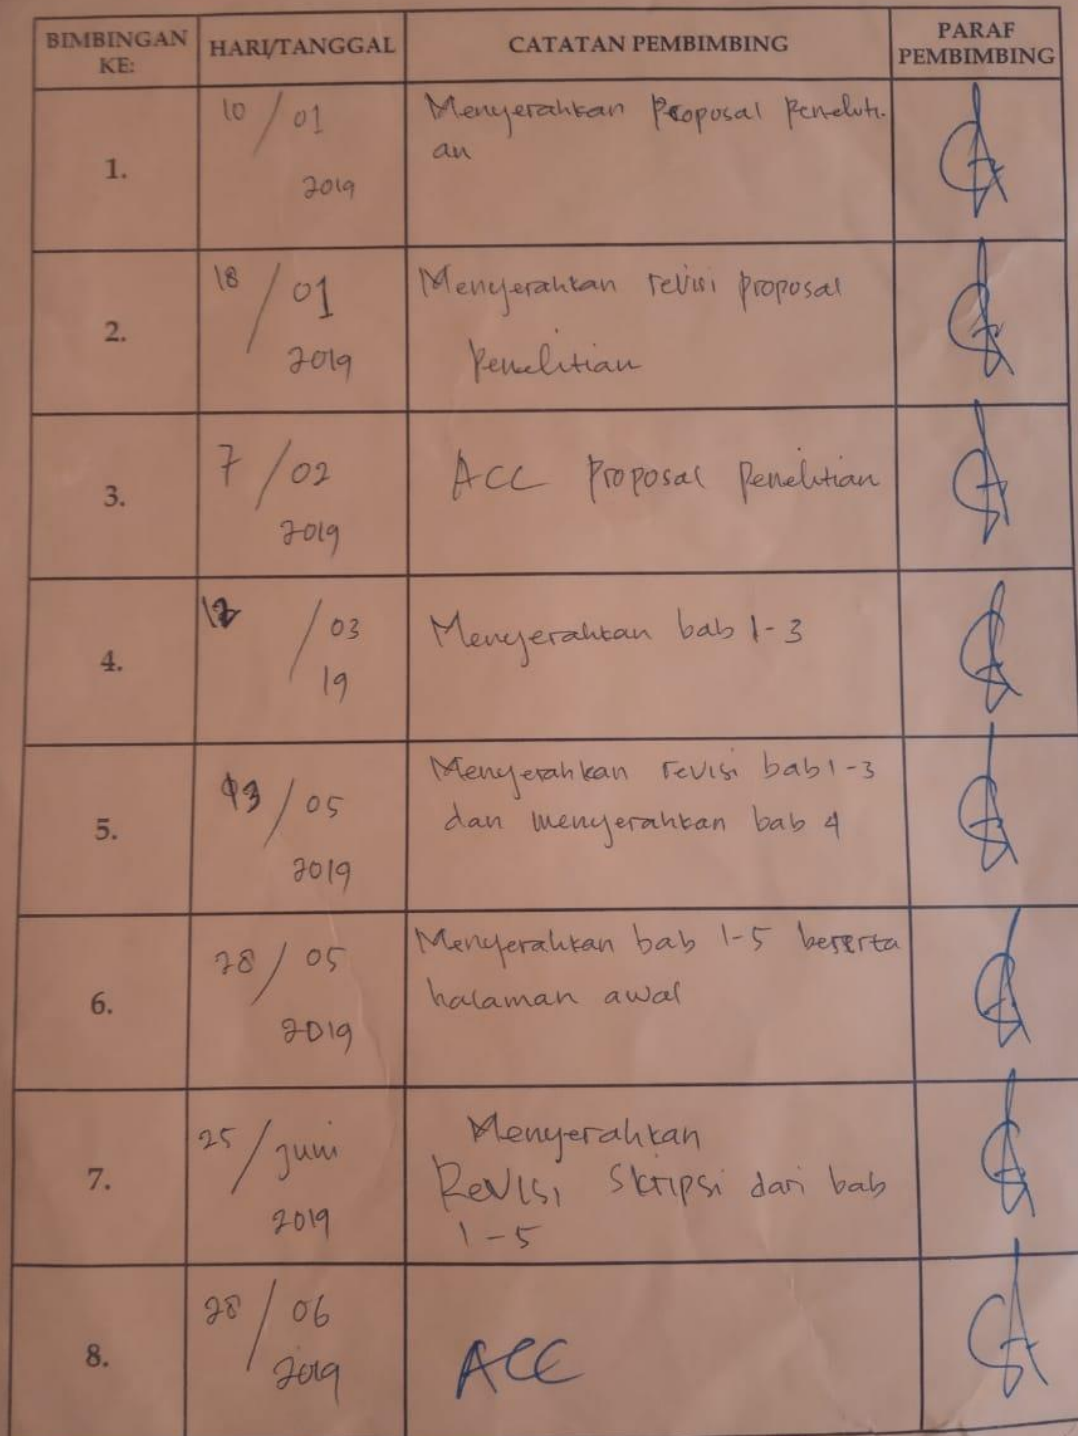 BIMBINGAN KE: HARI/TANGGAL CATATAN PEMBIMBING PARAF PEMBIMBING
1. 10 / 01 2019 Menyerahkan Proposal Peneliti-
an
2. 18 / 01 2019 Menyerahkan revisi proposal
Penelitian
3. 7 / 02 2019 ACC Proposal Penelitian
4. / 03 19 Menyerahkan bab 1-3
5. 13 / 05 2019 Menyerahkan revisi bab 1-3
dan menyerahkan bab 4
6. 28 / 05 2019 Menyerahkan bab 1-5 beserta
halaman awal
7. 25 / juni 2019 Menyerahkan
Revisi Skripsi dari bab
1-5
8. 28 / 06 2019 ACC